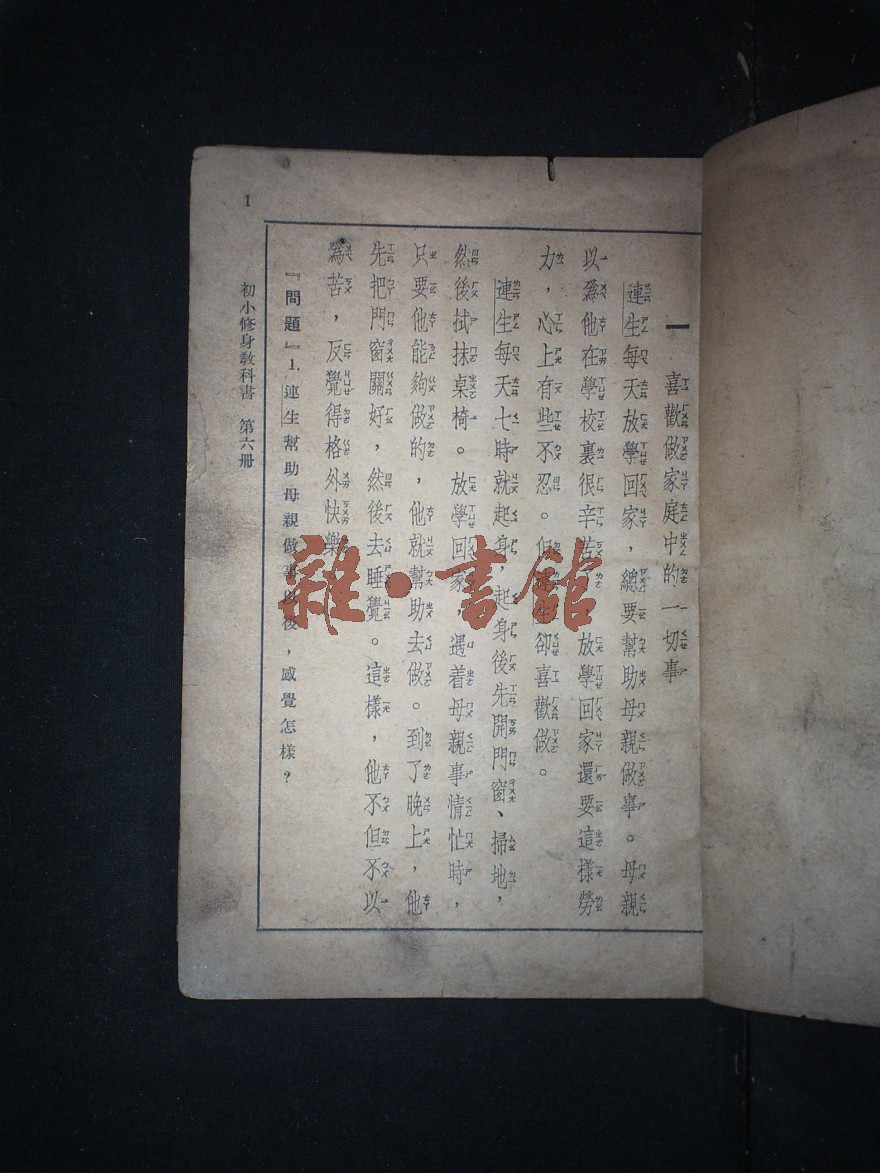 一 喜歡做家庭中的一切事
連生每天放學回家，總要幫助母親做事。母親
以爲他在學校裏很辛苦，放學回家還要這樣勞
力，心上有些不忍。但連生卻喜歡做。
連生每天七時就起身，起身後先開門窗、掃地，
然後拭抹桌椅。放學回家，遇着母親事情忙時，
只要他能夠做的，他就幫助去做。到了晚上，他
先把門窗關好，然後去睡覺。這樣，他不但不以
爲苦，反覺得格外快樂
『問題』1.連生幫助母親做事以後，感覺怎樣？
初小修身教科書 第六冊
1
雜·書館